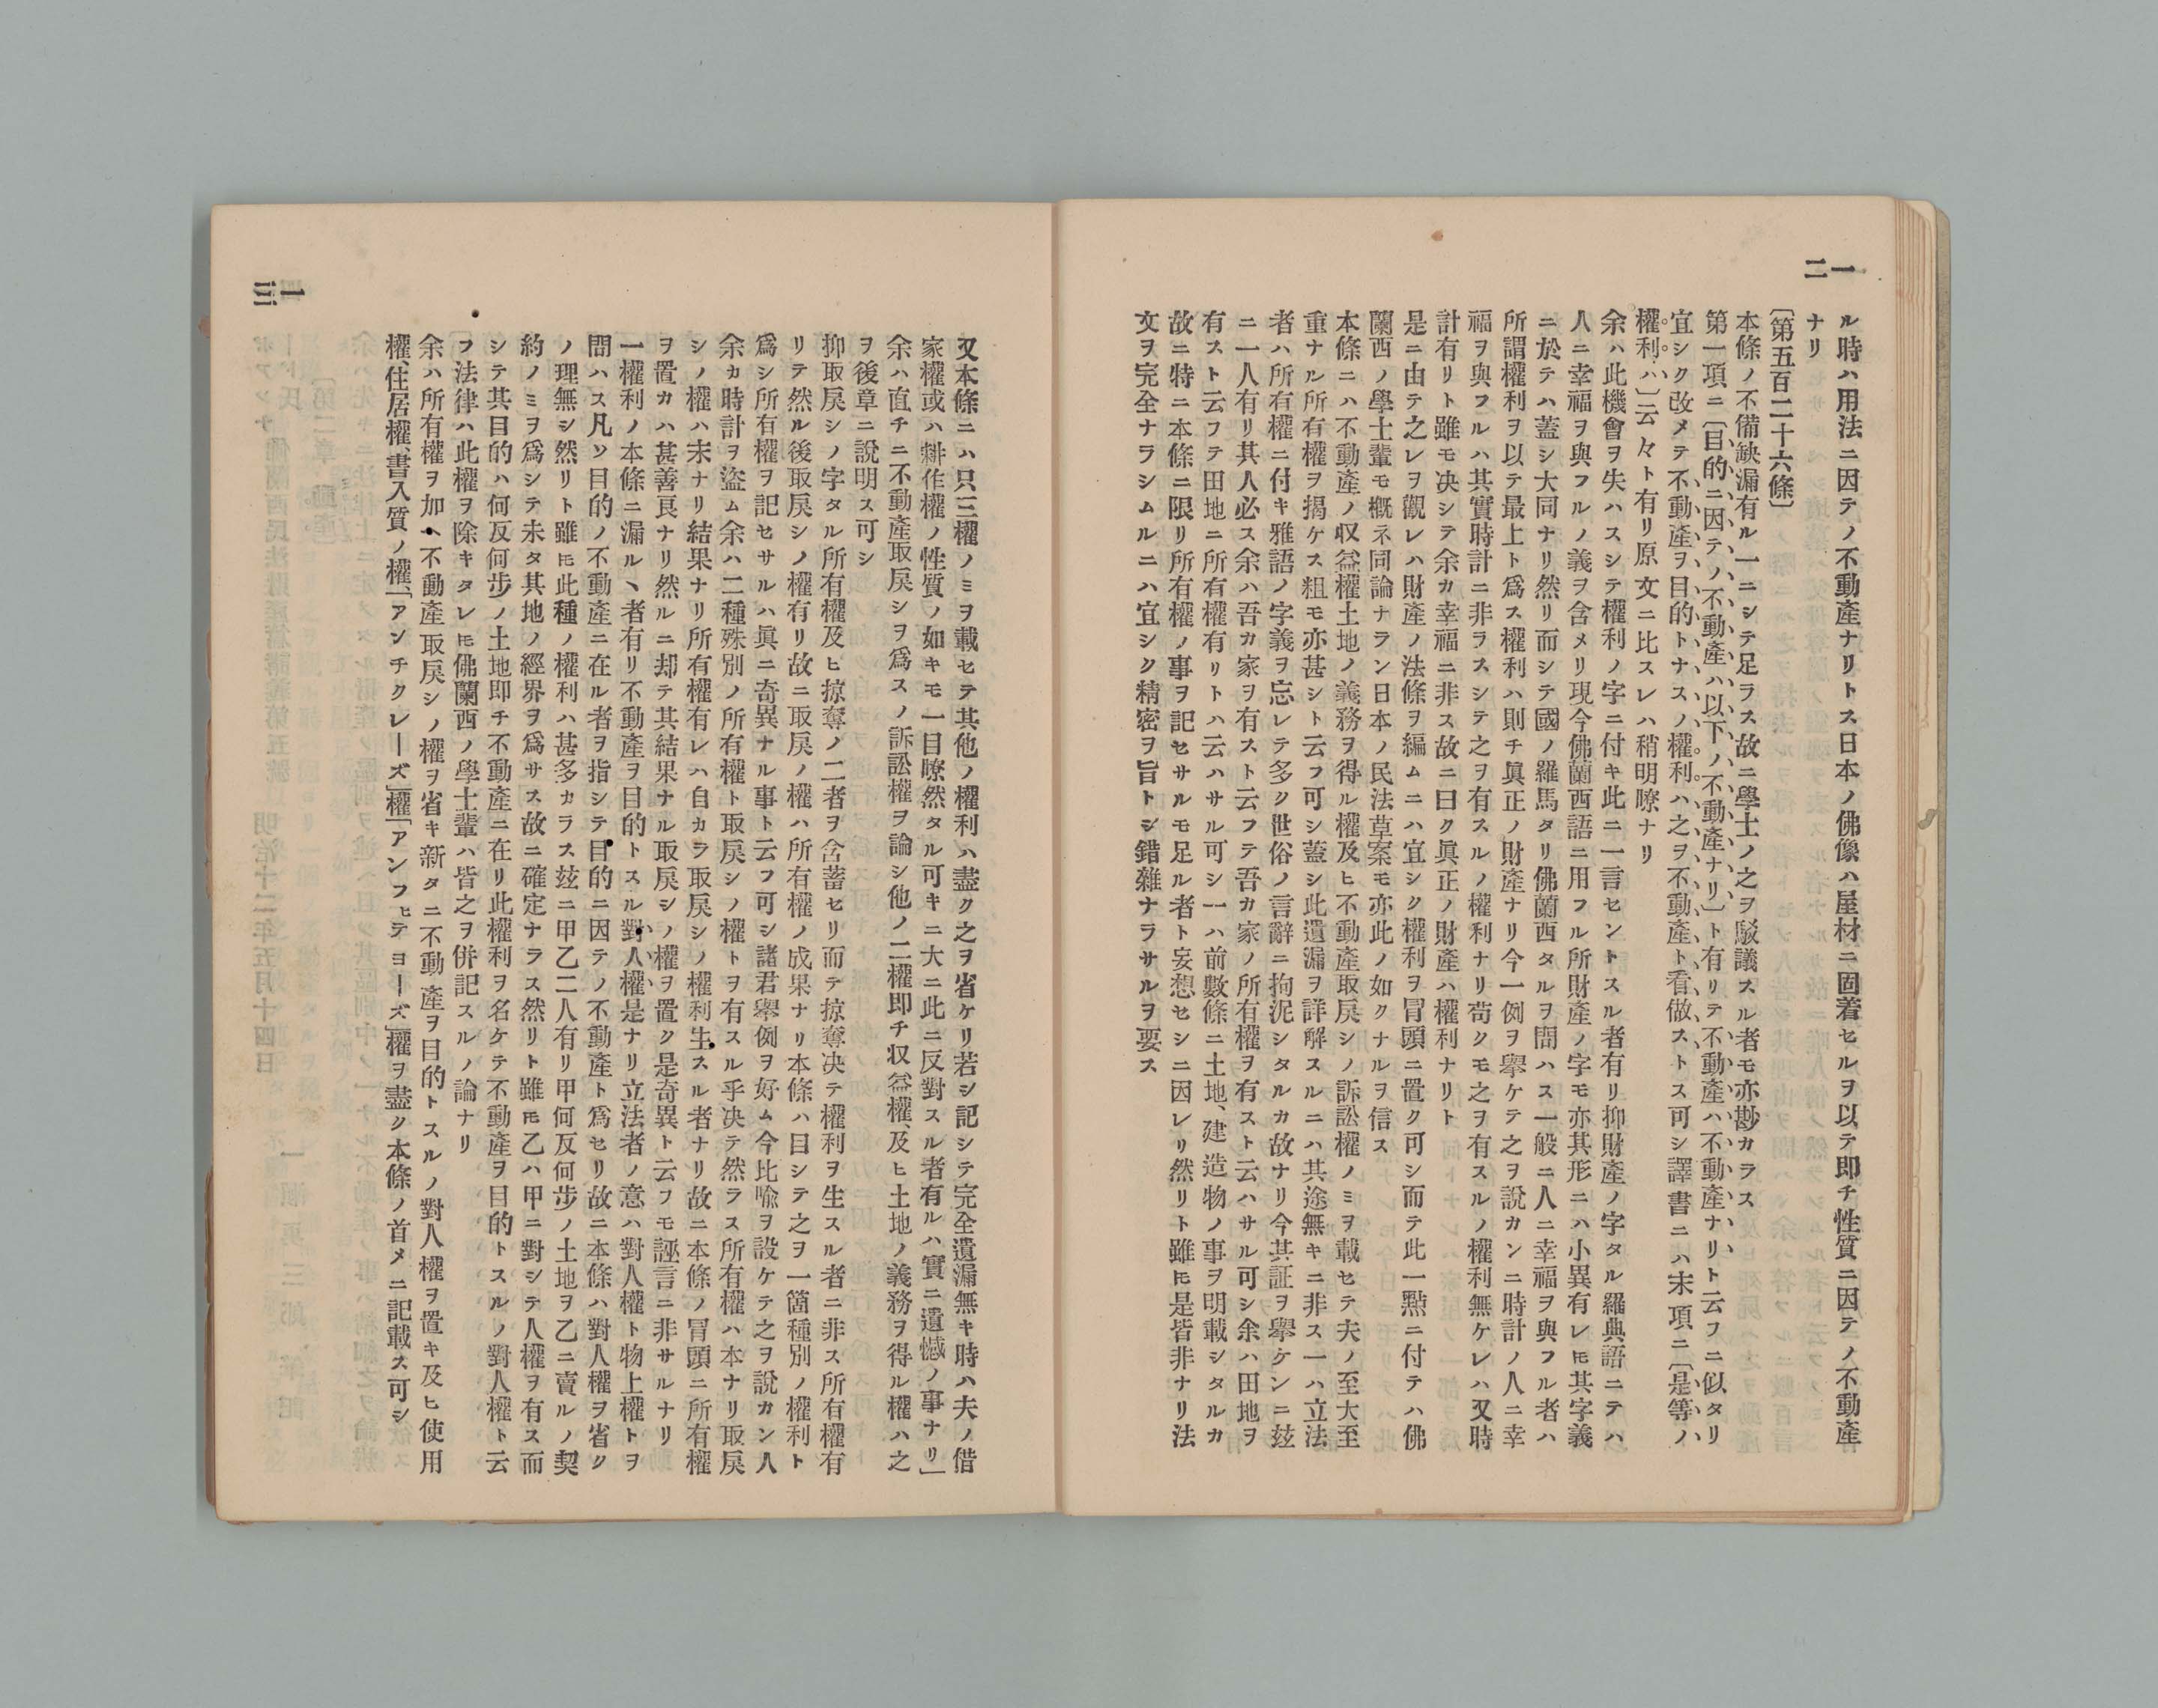 一二
ル時ハ用法ニ因テノ不動產ナリトス日本ノ佛像ハ屋材ニ固着セルヲ以テ即チ性質ニ因テノ不動產
ナリ
〔第五百二十六條〕
本條ノ不備缺漏有ル一ニシテ足ラス故ニ學士ノ之ヲ駁議スル者モ亦尠カラス
第一項ニ〔目的ニ因テノ不動產ハ以下ノ不動產ナリ〕ト有リテ不動產ハ不動產ナリト云フニ似タリ
宜シク改メテ不動產ヲ目的トナスノ權利ハ之ヲ不動產ト看做ストス可シ譯書ニハ末項ニ〔是等ノ
權利ハ〕云々ト有リ原文ニ比スレハ稍明瞭ナリ
余ハ此機會ヲ失ハスシテ權利ノ字ニ付キ此ニ一言セントスル者有リ抑財產ノ字タル羅典語ニテハ
人ニ幸福ヲ與フルノ義ヲ含メリ現今佛蘭西語ニ用フル所財產ノ字モ亦其形ニハ小異有レ𪜈其字義
ニ於テハ蓋シ大同ナリ然リ而シテ國ノ羅馬タリ佛蘭西タルヲ問ハス一般ニ人ニ幸福ヲ與フル者ハ
所謂權利ヲ以テ最上ト爲ス權利ハ則チ眞正ノ財產ナリ今一例ヲ擧ケテ之ヲ說カンニ時計ノ人ニ幸
福ヲ與フルハ其實時計ニ非ラスシテ之ヲ有スルノ權利ナリ苟クモ之ヲ有スルノ權利無ケレハ又時
計有リト雖モ决シテ余カ幸福ニ非ス故ニ曰ク眞正ノ財產ハ權利ナリト
是ニ由テ之レヲ觀レハ財產ノ法條ヲ編ムニハ宜シク權利ヲ冒頭ニ置ク可シ而テ此一點ニ付テハ佛
蘭西ノ學士輩モ概ネ同論ナラン日本ノ民法草案モ亦此ノ如クナルヲ信ス
本條ニハ不動產ノ収益權土地ノ義務ヲ得ル權及ヒ不動產取戾シノ訴訟權ノミヲ載セテ夫ノ至大至
重ナル所有權ヲ揭ケス粗モ亦甚シト云フ可シ蓋シ此遺漏ヲ詳解スルニハ其途無キニ非ス一ハ立法
者ハ所有權ニ付キ雅語ノ字義ヲ忘レテ多ク世俗ノ言辭ニ拘泥シタルカ故ナリ今其証ヲ擧ケンニ玆
ニ一人有リ其人必ス余ハ吾カ家ヲ有スト云フテ吾カ家ノ所有權ヲ有スト云ハサル可シ余ハ田地ヲ
有スト云フテ田地ニ所有權有リトハ云ハサル可シ一ハ前數條ニ土地、建造物ノ事ヲ明載シタルカ
故ニ特ニ本條ニ限リ所有權ノ事ヲ記セサルモ足ル者ト妄想セシニ因レリ然リト雖𪜈是皆非ナリ法
文ヲ完全ナラシムルニハ宜シク精密ヲ旨トシ錯雜ナラサルヲ要ス
一三
又本條ニハ只三權ノミヲ載セテ其他ノ權利ハ盡ク之ヲ省ケリ若シ記シテ完全遺漏無キ時ハ夫ノ借
家權或ハ耕作權ノ性質ノ如キモ一目瞭然タル可キニ大ニ此ニ反對スル者有ルハ實ニ遺憾ノ事ナリ」
余ハ直チニ不動產取戾シヲ爲スノ訴訟權ヲ論シ他ノ二權即チ収益權、及ヒ土地ノ義務ヲ得ル權ハ之
ヲ後章ニ說明ス可シ
抑取戾シノ字タル所有權及ヒ掠奪ノ二者ヲ含蓄セリ而テ掠奪决テ權利ヲ生スル者ニ非ス所有權有
リテ然ル後取戾シノ權有リ故ニ取戾ノ權ハ所有權ノ成果ナリ本條ハ曰シテ之ヲ一箇種別ノ權利ト
爲シ所有權ヲ記セサルハ眞ニ奇異ナル事ト云フ可シ諸君擧例ヲ好ム今比喩ヲ設ケテ之ヲ說カン人
余カ時計ヲ盜ム余ハ二種殊別ノ所有權ト取戾シノ權トヲ有スル乎决テ然ラス所有權ハ本ナリ取戾
シノ權ハ末ナリ結果ナリ所有權有レハ自カラ取戾シノ權利生スル者ナリ故ニ本條ノ冒頭ニ所有權
ヲ置カハ甚善良ナリ然ルニ却テ其結果ナル取戾シノ權ヲ置ク是奇異ト云フモ誣言ニ非サルナリ
一權利ノ本條ニ漏ルヽ者有リ不動產ヲ目的トスル對人權是ナリ立法者ノ意ハ對人權ト物上權トヲ
問ハス凡ソ目的ノ不動產ニ在ル者ヲ指シテ目的ニ因テノ不動產ト爲セリ故ニ本條ハ對人權ヲ省ク
ノ理無シ然リト雖𪜈此種ノ權利ハ甚多カラス玆ニ甲乙二人有リ甲何反何步ノ土地ヲ乙ニ賣ルノ契
約ノミヲ爲シテ未タ其地ノ經界ヲ爲サス故ニ確定ナラス然リト雖𪜈乙ハ甲ニ對シテ人權ヲ有ス而
シテ其目的ハ何反何步ノ土地即チ不動產ニ在リ此權利ヲ名ケテ不動產ヲ目的トスルノ對人權ト云
フ法律ハ此權ヲ除キタレ𪜈佛蘭西ノ學士輩ハ皆之ヲ併記スルノ論ナリ
余ハ所有權ヲ加ヘ不動產取戾シノ權ヲ省キ新タニ不動產ヲ目的トスルノ對人權ヲ置キ及ヒ使用
權、住居權、書入質ノ權「アンチクレーズ」權「アンフヒテヨーズ」權ヲ盡ク本條ノ首メニ記載ス可シ